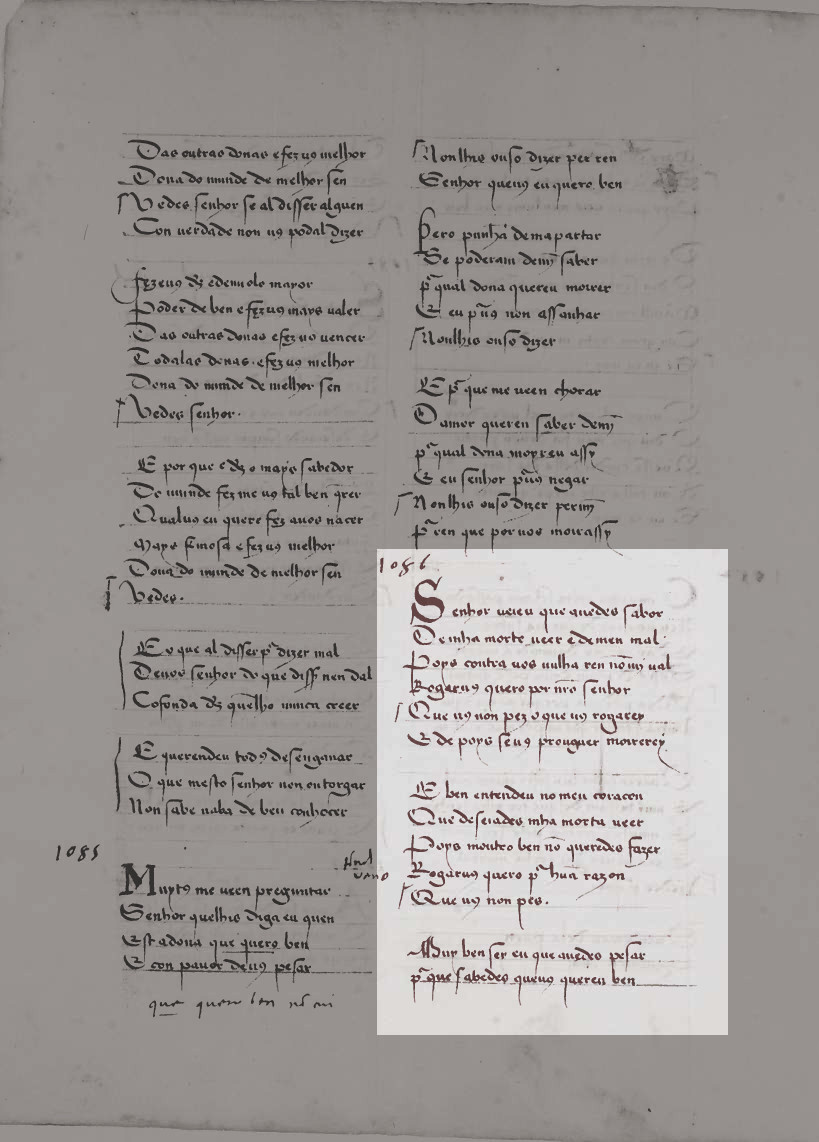 Das outras donas e fez uo melhor
Dona do mundo de melhor sen
Vedes senhor se al disser alguen
Con uerdade non uꝰ podal dizer
fezeuꝰ d̄s e demolo mayor
Poder de ben e fez uꝰ mays ualer
Das outras donas e fez uꝰ uencer
Todalas donas. e fez uꝰ melhor
Dona do mundo de melhor sen
Vedes senhor.
E por que e d̄s o mays sabedor
De mūdo fez me uꝰ tal ben q̄rer
Qual uꝰ eu quero fez auos nacer
Mays fremosa e fez uꝰ melhor
Dona do mundo de melhor sen
Vedes.
E o que al disser p̄ dizer mal
De uos senhor do que diss nen dal
Cofonda d̄s quē lho nunca creer
E querendeu todꝰ desenganar
O que mesto senhor non outorgar
Non sabe nada de ben conhocer
1085
Muytꝰ me ueen preguntar
Senhor que lhis diga eu quen
Est a dona que quero ben
E con pauor de uꝰ pesar
Non lhis ouso dizer per ren
Senhor queuꝰ eu quero ben
Pero punhā demapartar
Se poderam demī saber
p̄ qual dona quereu morrer
E eu p̄uꝰ non assanhar
Non lhis ouso dizer
E p̄ que me ueen chorar
Damor queren saber demī
p̄ qual dona moyreu assy
E eu senhor p̄uꝰ negar
Non lhis ouso dizer per mī
p̄ ren que por uos moirassy
1086
Senhor ueieu que auedes sabor
De mha morte ueer e demen mal
Poys contra uos nulha ren nō mī ual
Rogaruꝰ quero por nr̄o senhor
Que uꝰ non pez o que uꝰ rogarey
E de poys se uꝰ prouguer morrerey
E ben entendeu no meu coracon
Que deseiades mha morta ueer
Poys moutro ben nō queredes fazer
Rogaruꝰ quero p̄ hūa razon
Que uꝰ non pes.
Muy ben ser eu que auedes pesar
p̄ que sabedes queuꝰ quereu ben